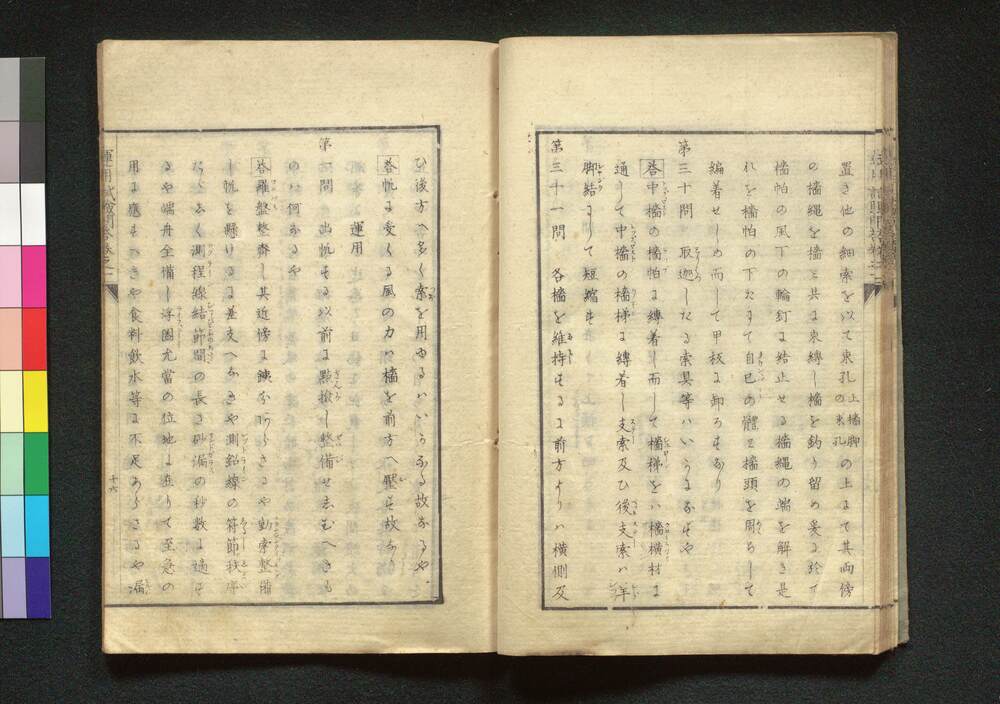 置き他の細索を以て束孔上檣脚の束孔の上にて其両傍
の檣縄を檣と共に束縛し檣を釣り留め爰に於て
檣帕の風下の輪釘に結止せる檣縄の端を解き是
れを檣帕の下にて自己の體を檣頭を
編着せしめ而して甲板に卸ろすなり
第三十問 取廻したる索具等ハいかになすや
答中檣の檣帕に縛着し而して檣梯をハ檣横材に
通して中檣の檣梯に縛着し支索及ひ後支索ハ洋
脚結にして短縮す
第三十一問 各檣を維持するに前方よりハ横側及
ひ後方へ多く索を用ゆるハいかなる故なるや
答帆に受くる風の力ハ檣を前方へ壓す故なり
運用
第一問 出帆する以前に點撿し整備せしむへきも
のハ何なるや
答羅盤整齊し其近傍に鐵なあらさるや動索整備
し帆を懸けるに差支へなきや測鉛線の符節秩序
たゝしく測程線結節間の長さ砂漏の秒數に適せ
るや端舟全備し浮圏允當の位地に在りて至急の
用に應すへきや食料飲水等に不足あらさるや漏
十六